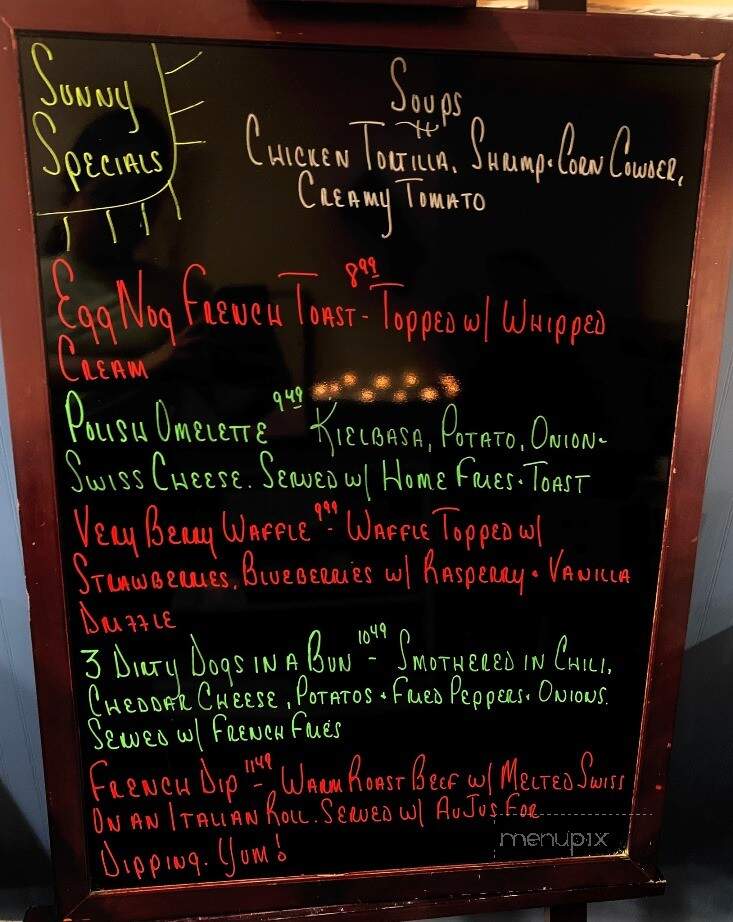 Sunny
Specials
Soups
Chicken Tortilla, Shrimp + Corn Cowder,
Creamy Tomato
Egg Nog French Toast - 8.99 Topped w/ Whipped
Cream
Polish Omelette 9.49 Kielbasa, Potato, Onion +
Swiss Cheese. Served w/ Home Fries + Toast
Very Berry Waffle 9.99 - Waffle Topped w/
Strawberries, Blueberries w/ Rasperry + Vanilla
Drizzle
3 Dirty Dogs in a Bun 10.49 - Smothered in Chili,
Cheddar Cheese, Potatos + Fried Peppers + Onions.
Served w/ French Fries
French Dip 11.49 - Warm Roast Beef w/ Melted Swiss
on an Italian Roll. Served w/ Au Jus For
Dipping. Yum!
menupix